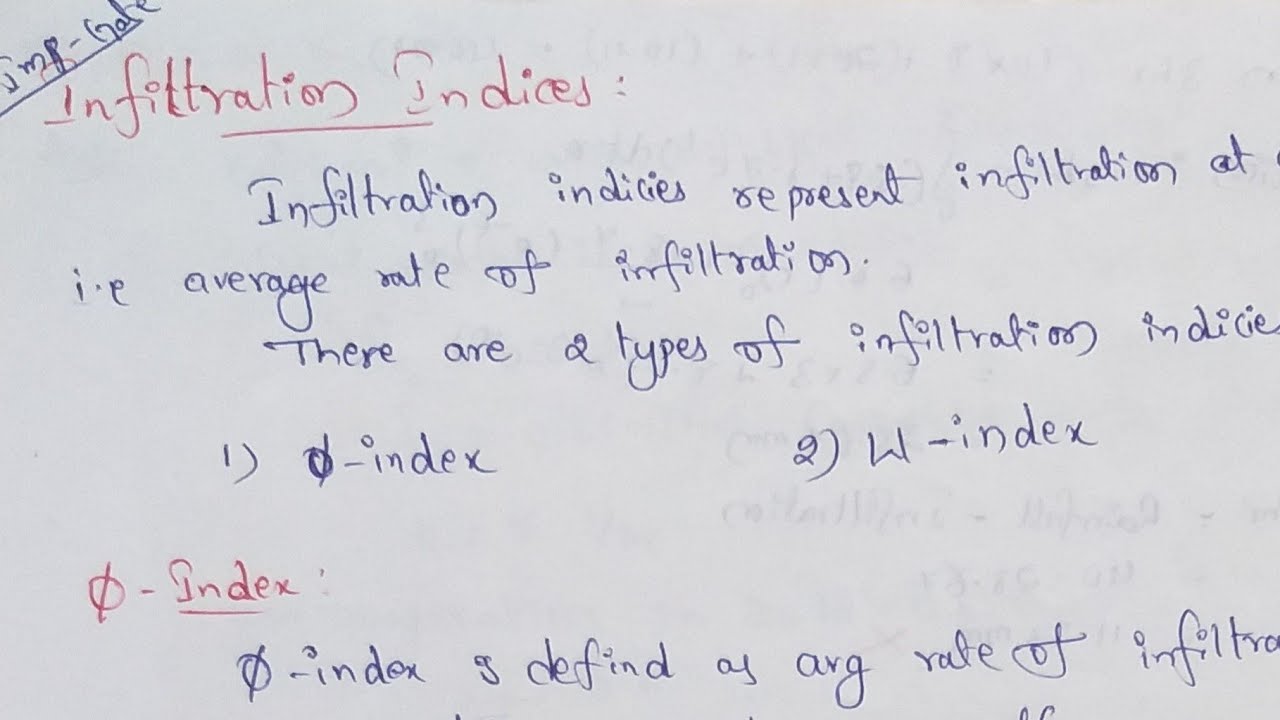 Imp-Gate
Infiltration Indices:
Infiltration indicies represent infiltration at
i.e average rate of infiltration.
There are 2 types of infiltration indicie
1) ϕ-index 2) W-index
ϕ-Index:
ϕ-index is defind as avg rate of infiltra